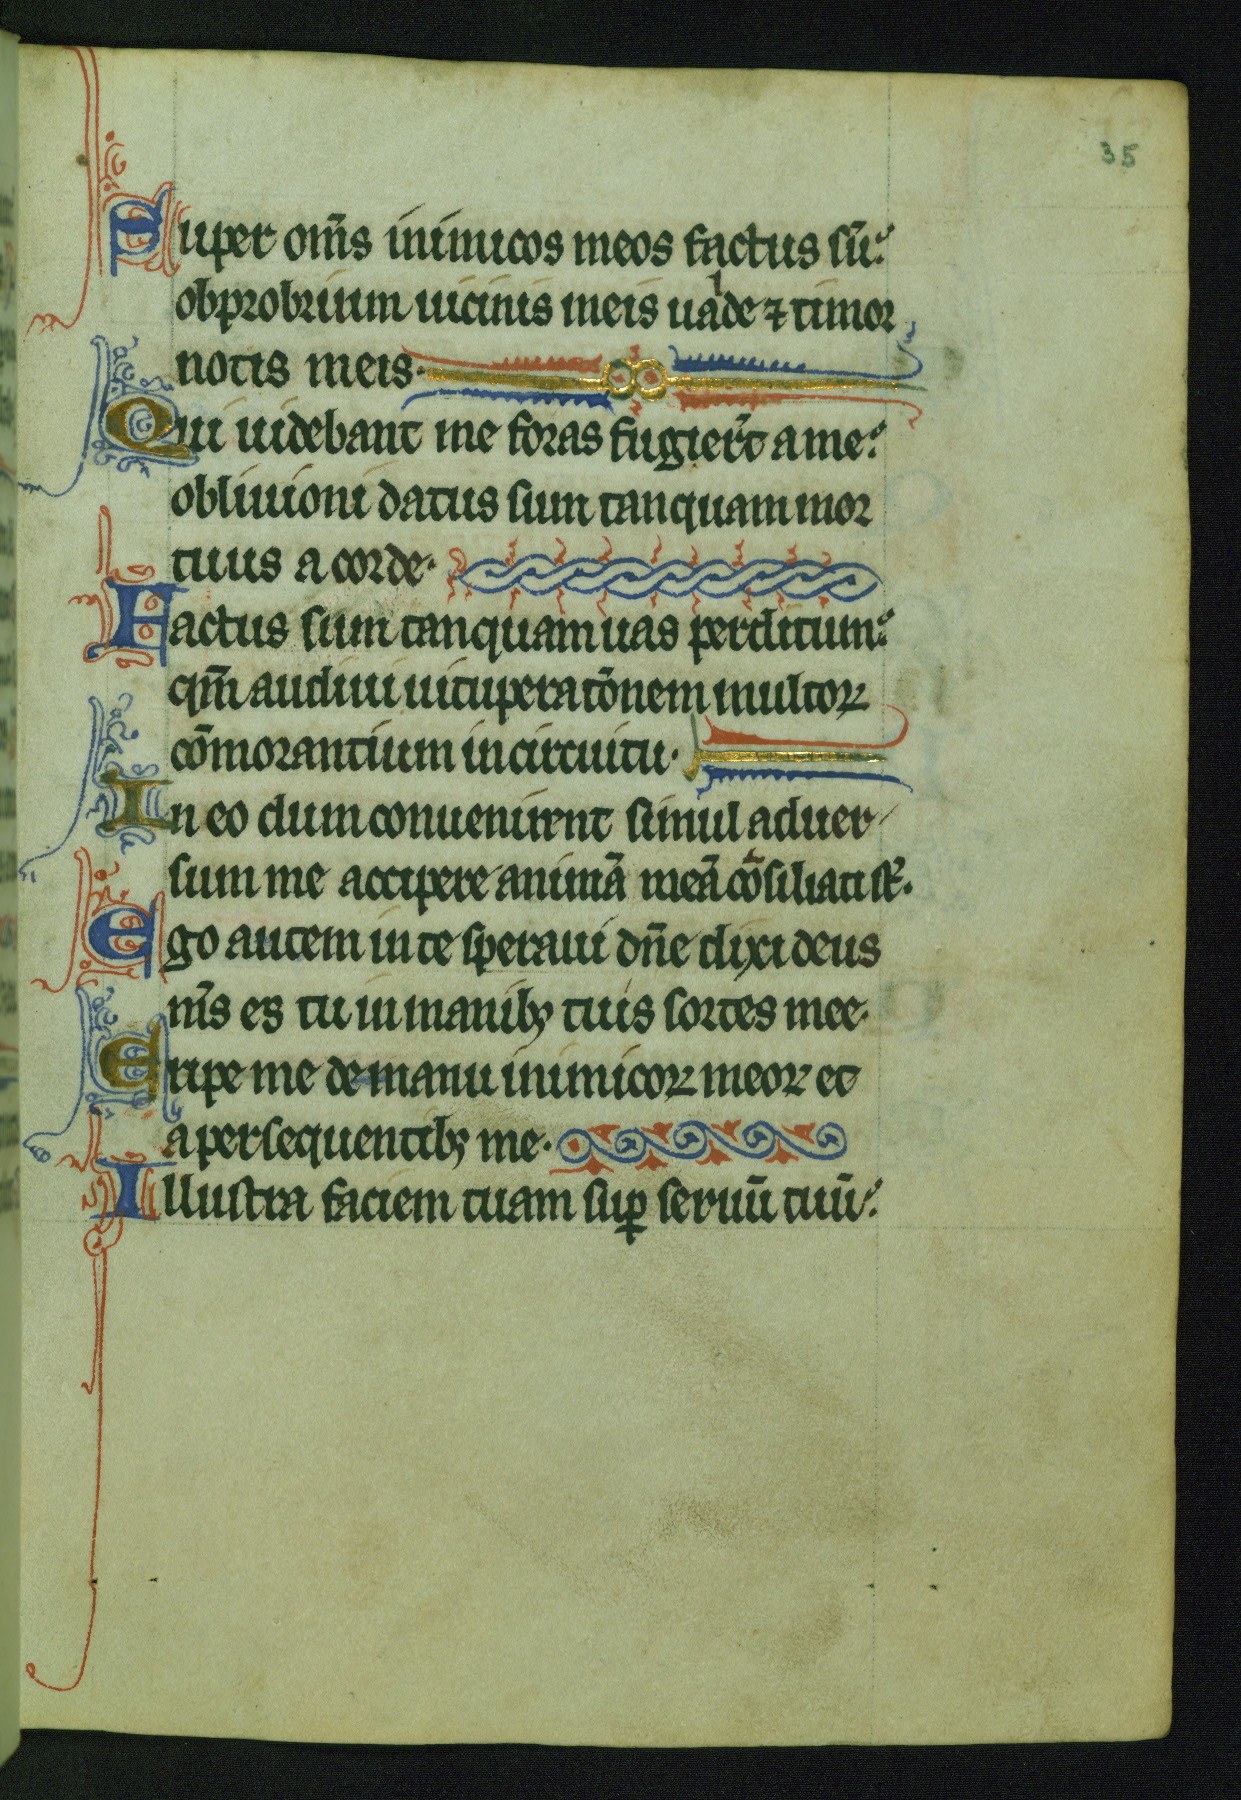 35
Super om̅s inimicos meos factus su̅:
obprobrium uicinis meis ualde ⁊ timor
notis meis·
Qui uidebant me foras fugier̅t a me:
obliuioni datus sum tanquam mor
tuus a corde·
Factus sum tanquam uas perditum:
qm̅ audiui uituperato̅nem multoꝝ
co̅morantium in circuitu·
In eo dum conuenirent simul aduer
sum me accipere anima̅ mea̅ co̅siliati st̅·
Ego autem in te speraui dn̅e dixi deus
m̅s es tu in manibꝫ tuis sortes mee·
Eripe me de manu inimicoꝝ meoꝝ et
a persequentibꝫ me·
Illustra faciem tuam suꝑ seruu̅ tuu̅: